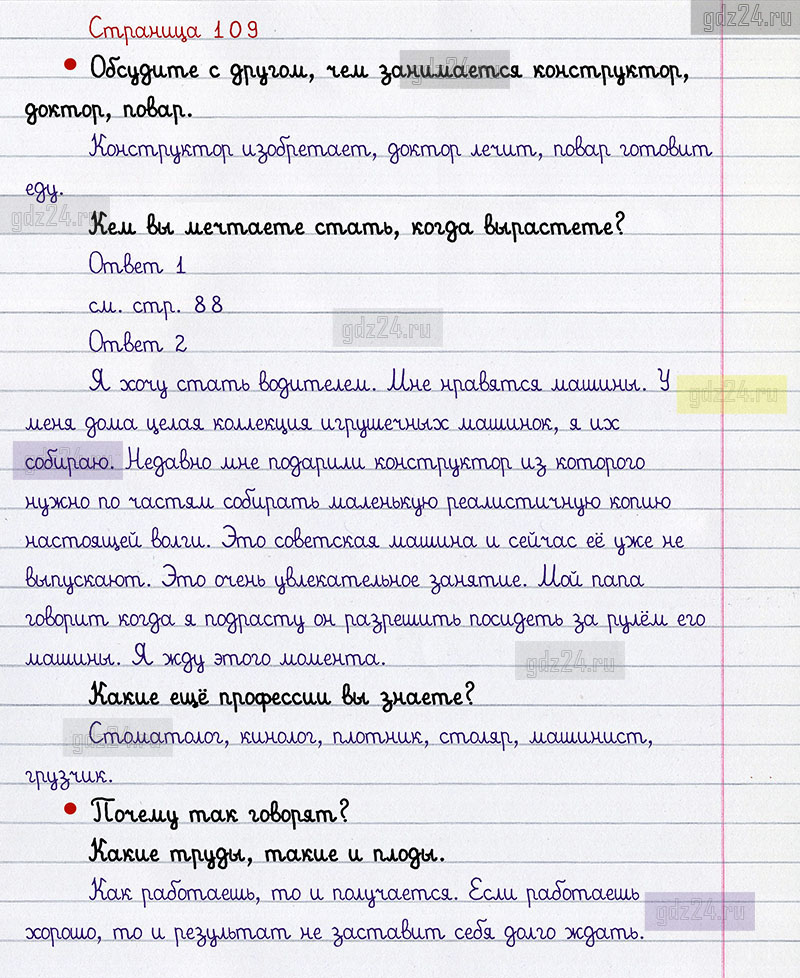 gdz24.ru
Страница 109
• Обсудите с другом, чем занимается конструктор,
доктор, повар.
Конструктор изобретает, доктор лечит, повар готовит
еду.
gdz24.ru
Кем вы мечтаете стать, когда вырастете?
Ответ 1
см. стр. 88
gdz24.ru
Ответ 2
Я хочу стать водителем. Мне нравятся машины. У
gdz24.ru
меня дома целая коллекция игрушечных машинок, я их
собираю. Недавно мне подарили конструктор из которого
нужно по частям собирать маленькую реалистичную копию
настоящей волги. Это советская машина и сейчас её уже не
выпускают. Это очень увлекательное занятие. Мой папа
говорит когда я подрасту он разрешить посидеть за рулём его
машины. Я жду этого момента.
gdz24.ru
Какие ещё профессии вы знаете?
Стоматолог, кинолог, плотник, столяр, машинист,
gdz24.ru
грузчик.
• Почему так говорят?
Какие труды, такие и плоды.
Как работаешь, то и получается. Если работаешь
gdz24.ru
хорошо, то и результат не заставит себя долго ждать.